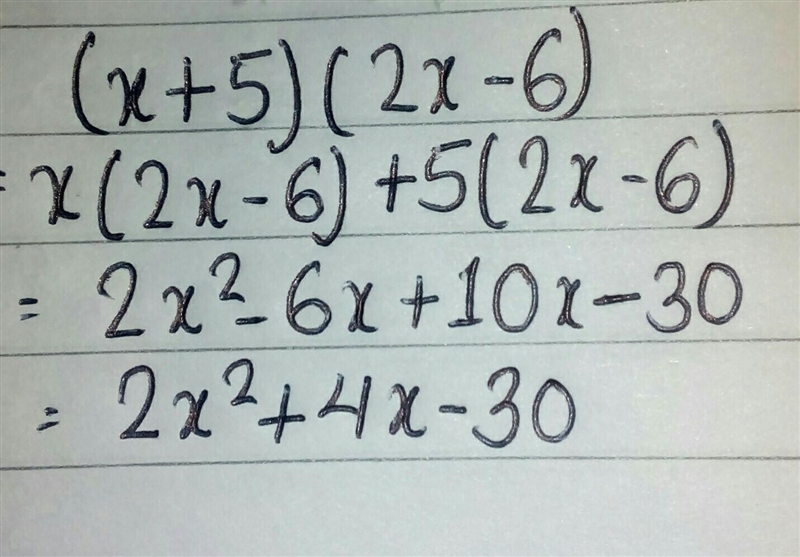 (x+5)(2x-6)
= x(2x-6)+5(2x-6)
= 2x²-6x+10x-30
= 2x²+4x-30